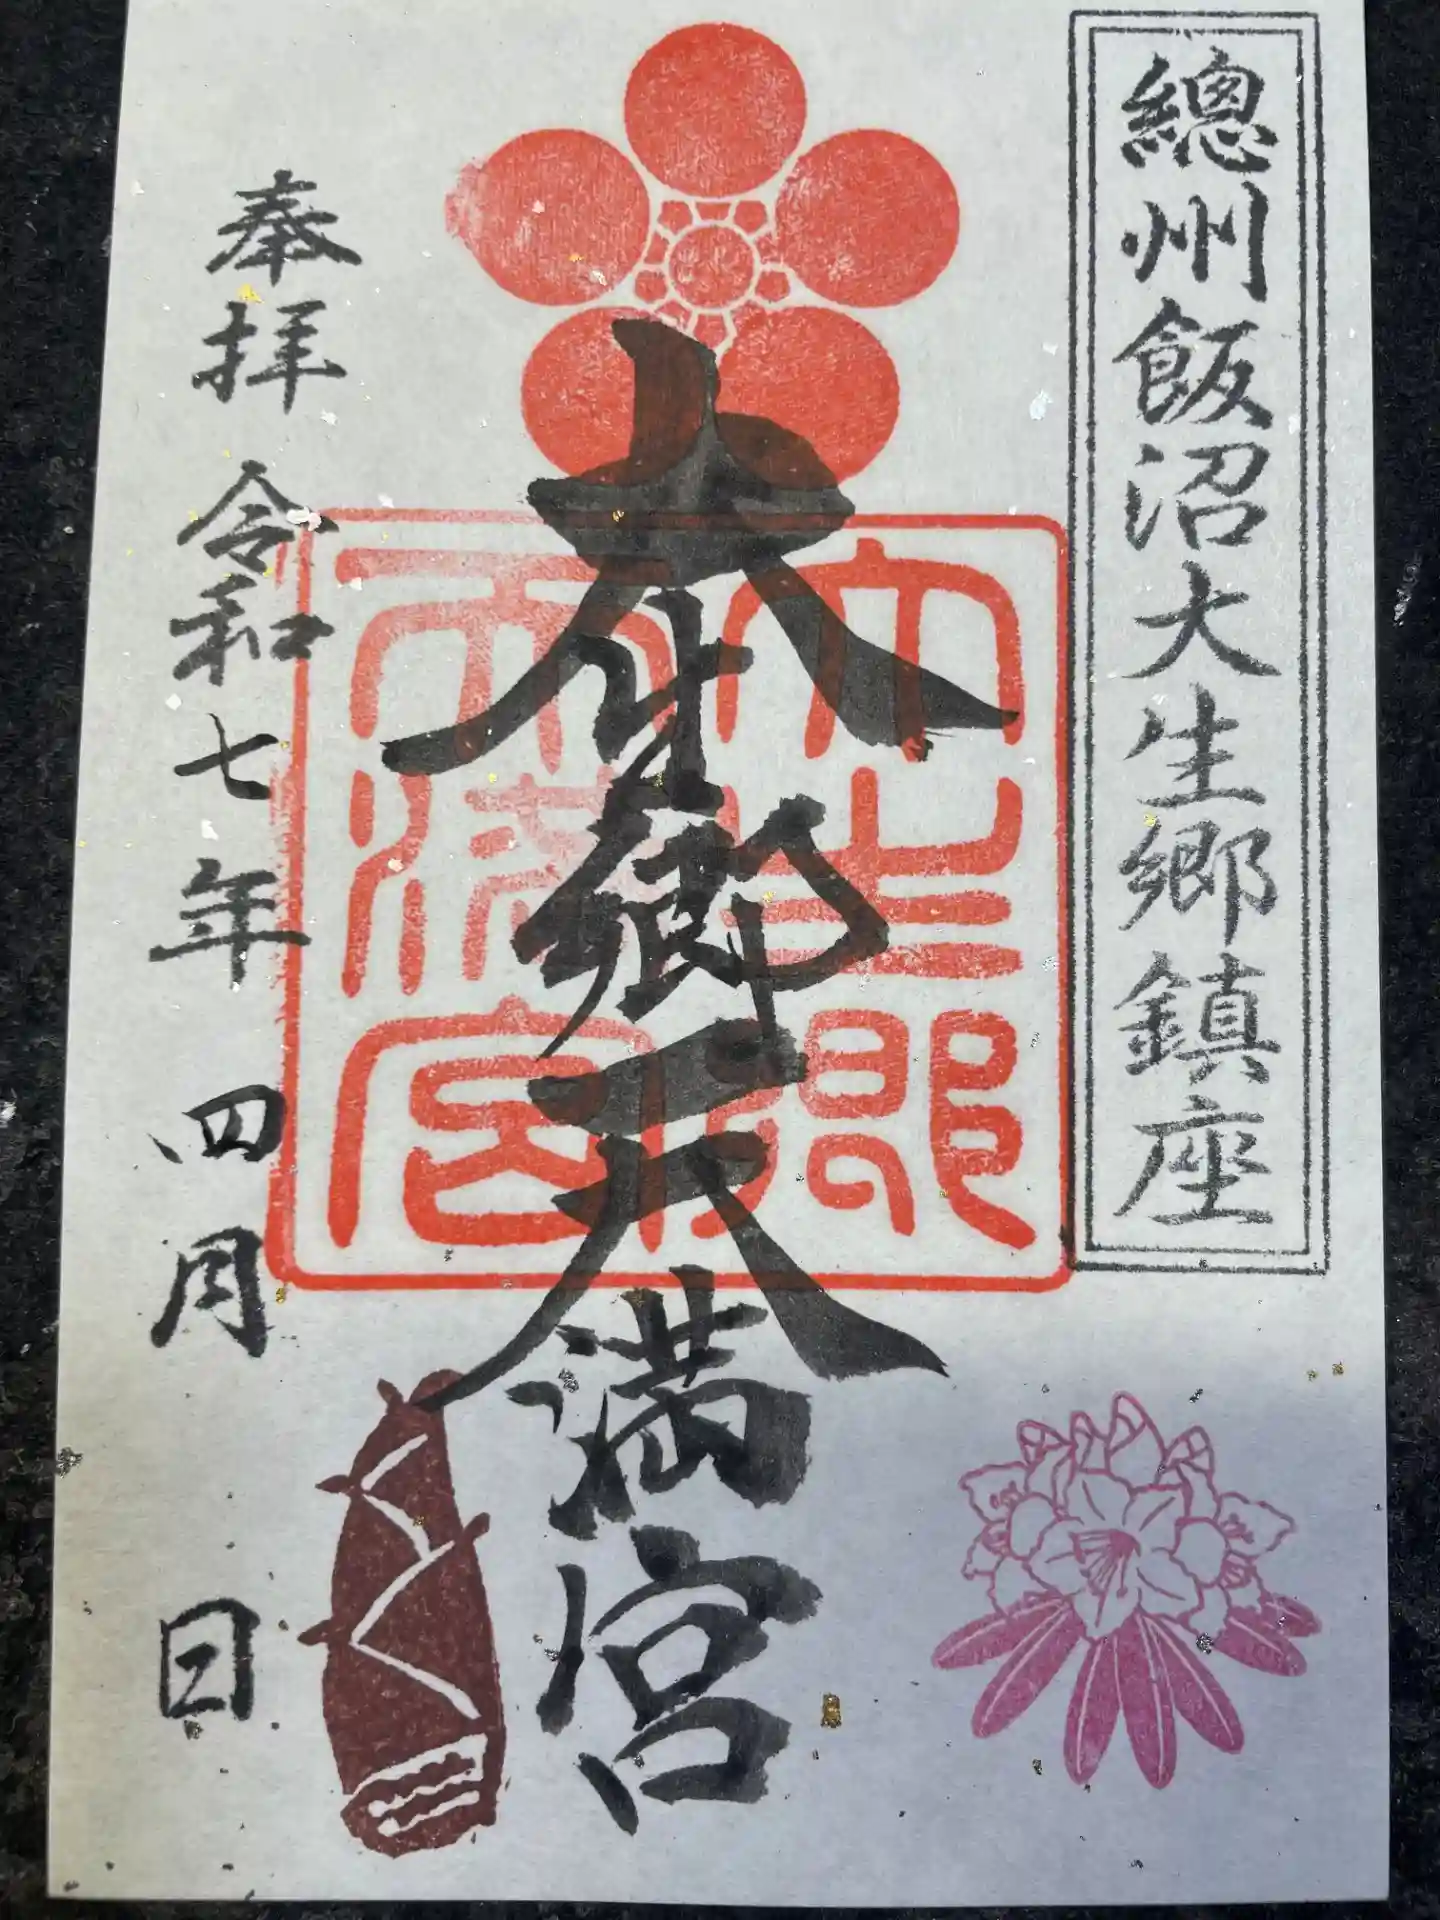 總州飯沼大生郷鎮座
大生郷天満宮
大生郷
天満宮
奉拝 令和七年 四月 日